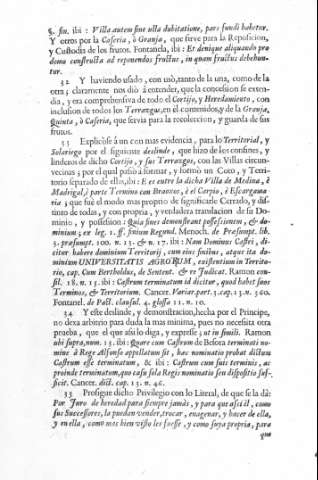 §. fin. ibi: Villa autem sine ulla dubitatione, pars fundi habetur.
Y otros por la Caseria, ò Granja, que sirve para la Reposicion,
y Custodia de los frutos. Fontanela, ibi: Et denique aliquando pro
domo constructa ad reponendos fructus, in quam fructus debehun-
tur.
32 Y haviendo usado, con uso, tanto de la una, como de la
otra; claramente nos diò à entender, que la concession se exten-
dia, y era comprehensiva de todo el Cortijo, y Heredamiento, con
inclusion de todos los Terrazgos, en el contenidos, y de la Granja,
Quinta, ò Caseria, que servia para la recoleccion, y guarda de sus
frutos.
33 Explicòse à un con mas evidencia, para lo Territorial, y
Solariego por el siguiente deslinde, que hizo de los confines, y
linderos de dicho Cortijo, y sus Terrazgos, con las Villas circun-
vecinas; por el qual passò à formar, y formò un Coto, y Terri-
torio separado de ellos, ibi: E es entre la dicha Villa de Medina, è
Madrigal, à parte Termino con Brantos, è el Carpio, è Escargama-
ria; que fuè el modo mas proprio de significarle Cerrado, y dis-
tinto de todas, y con propria, y verdadera translacion de su Do-
minio, y possession: Quia fines demonstrant possessionem, & do-
minium; ex leg. 1. ff. finium Regund. Menoch. de Præsumpt. lib.
3. præsumpt. 100. n. 13. & n. 17. ibi: Nam Dominus Castri, di-
citur habere dominium Territorij, cum eius finibus, atque ita do-
minium UNIVERSITATIS AGRORUM, existentium in Territo-
rio, cap. Cum Bertholdus, de Sentent. & re Judicat. Ramon con-
sil. 18. n. 15. ibi: Castrum terminatum id dicitur, quod habet suos
Terminos, & Territorium. Cancer. Variar. part. 3. cap. 13. n. 360.
Fontanel. de Pact. clausul. 4. glossa 11. n. 10.
34 Y este deslinde, y demonstracion, hecha por el Principe,
no dexa arbitrio para duda la mas minima, pues no necessita otra
prueba, que el que assi lo diga, y expresse; ut in simili. Ramon
ubi supra, num. 15. ibi: Quare cum Castrum de Besora terminati no-
mine à Rege Alfonso appellatum sit, hac nominatio probat dictum
Castrum esse terminatum, & ibi: Castrum cum suis terminis, ac
proinde terminatum, quo casu sola Regis nominatio seu dispositio suf-
ficit. Cancer. dict. cap. 13. n. 46.
35 Prosigue dicho Privilegio con lo Literal, de que se la dà:
Por Juro de heredad para siempre jamàs, y para que assi el, como
sus Successores, la puedan vender, trocar, enagenar, y hacer de ella,
y en ella, como mas bien visto les fuesse, y como suya propria, para
que